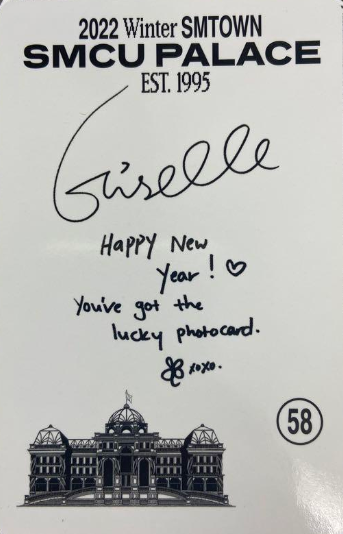 2022 Winter SMTOWN
SMCU PALACE
EST. 1995
Giselle
Happy New
Year! ♡
You've got the
lucky photocard.
xoxo.
58